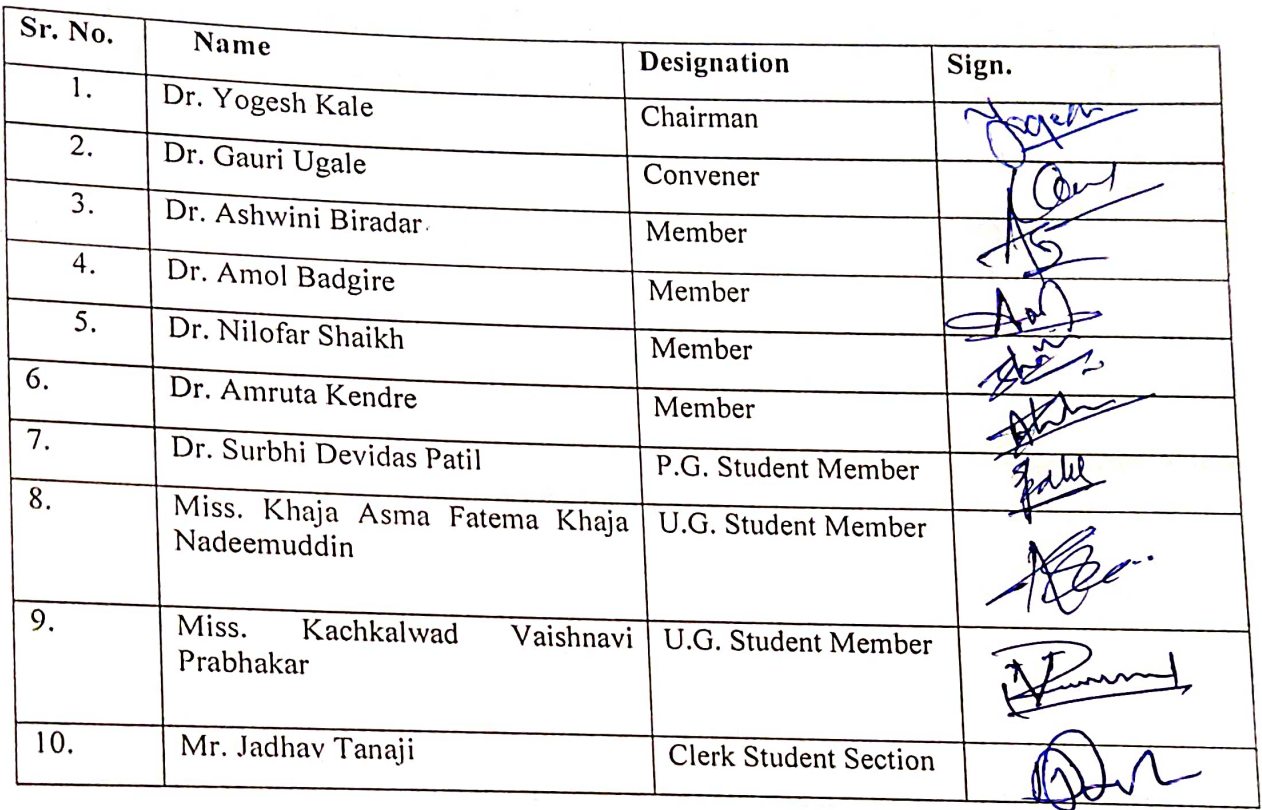 Sr. No. Name Designation Sign.
1. Dr. Yogesh Kale Chairman Yogesh
2. Dr. Gauri Ugale Convener
3. Dr. Ashwini Biradar Member
4. Dr. Amol Badgire Member
5. Dr. Nilofar Shaikh Member
6. Dr. Amruta Kendre Member
7. Dr. Surbhi Devidas Patil P.G. Student Member
8. Miss. Khaja Asma Fatema Khaja U.G. Student Member
Nadeemuddin
9. Miss. Kachkalwad Vaishnavi U.G. Student Member
Prabhakar
10. Mr. Jadhav Tanaji Clerk Student Section